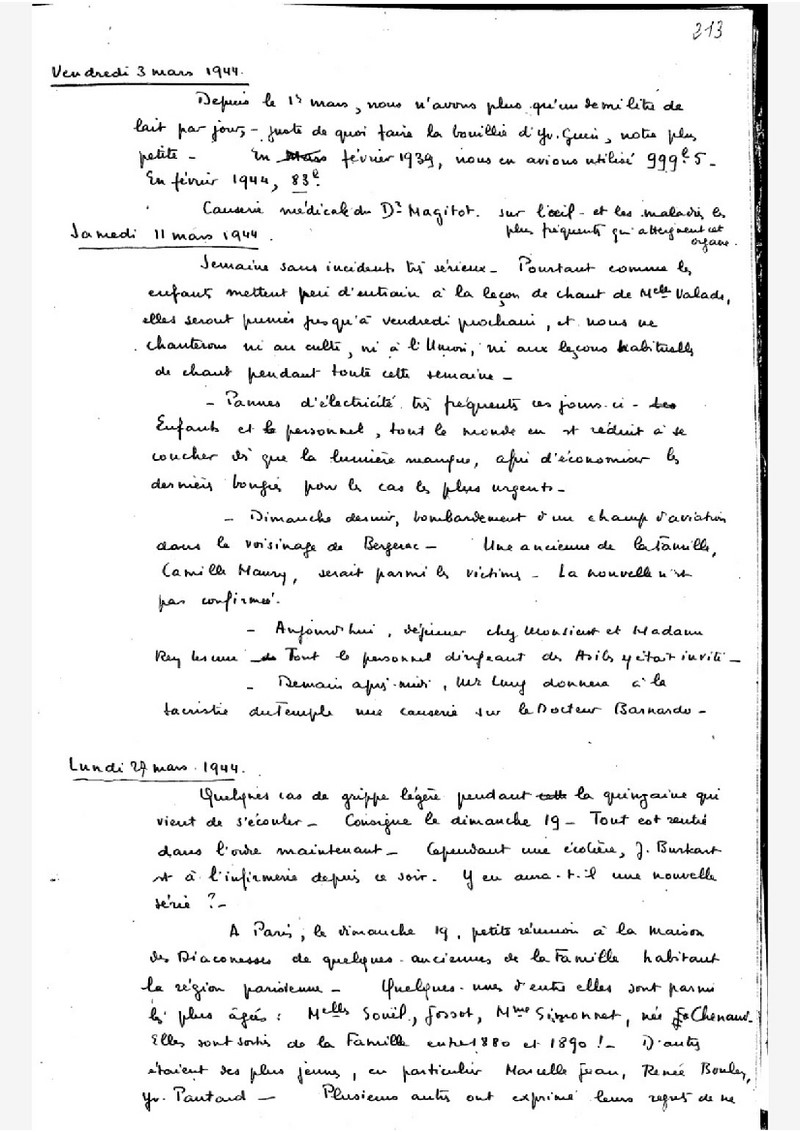 213
Vendredi 3 mars 1944.
Depuis le 1er mars, nous n'avons plus qu'un demi litre de
lait par jour, - juste de quoi faire la bouillie d'Yv. Guin, notre plus
petite - En mars février 1939, nous en avions utilisé 999l5 -
En février 1944, 83l.
Causerie médicale du Dr Magitot. sur l'œil - et les maladies les
plus fréquentes qui atteignent cet
organe.
Samedi 11 mars 1944.
Semaine sans incidents très sérieux - Pourtant comme les
enfants mettent peu d'entrain à la leçon de chant de Melle Valade,
elles seront punies jusqu'à vendredi prochain, et nous ne
chanterons ni au culte, ni à l'Union, ni aux leçons habituelles
de chant pendant toute cette semaine -
- Pannes d'électricité très fréquentes ces jours-ci - Les
Enfants et le personnel, tout le monde en est réduit à se
coucher dès que la lumière manque, afin d'économiser les
dernières bougies pour les cas les plus urgents -
- Dimanche dernier, bombardement d'un champ d'aviation
dans le voisinage de Bergerac - Une ancienne de la Famille,
Camille Maury, serait parmi les victimes - La nouvelle n'est
pas confirmée.
- Aujourd'hui, déjeuner chez Monsieur et Madame
Rey Lescure - Tout le personnel dirigeant des Asiles y était invité -
- Demain après-midi, Mr Lung donnera à la
sacristie du Temple une causerie sur le Docteur Barnardo -
Lundi 27 mars 1944.
Quelques cas de grippe légère pendant cette la quinzaine qui
vient de s'écouler - Consigne le dimanche 19 - Tout est rentré
dans l'ordre maintenant - Cependant une écolière, J. Burkart
est à l'infirmerie depuis ce soir. Y en aura-t-il une nouvelle
série ? -
A Paris, le dimanche 19, petite réunion à la maison
des Diaconesses de quelques anciennes de la Famille habitant
la région parisienne - Quelques-unes d'entre elles sont parmi
les plus âgées : Melles Souël, Jossot, Mme Simonnet, née Chenaud -
Elles sont sorties de la Famille entre 1880 et 1890 ! - D'autres
étaient des plus jeunes, en particulier Marcelle Juan, Renée Bouley,
Yv. Pautard - Plusieurs autres ont exprimé leurs regrets de ne